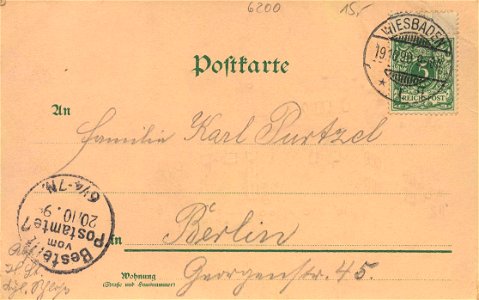 6200 15,-
WIESBADEN
19.10.9
5
REICHSPOST
Postkarte
An
Familie Karl Purtzel
6¼-7N.
20/10. 9
Bestellt
vom
Postamte 7
in Berlin
Wohnung
(Straße und Hausnummer)
Georgenstr. 45.